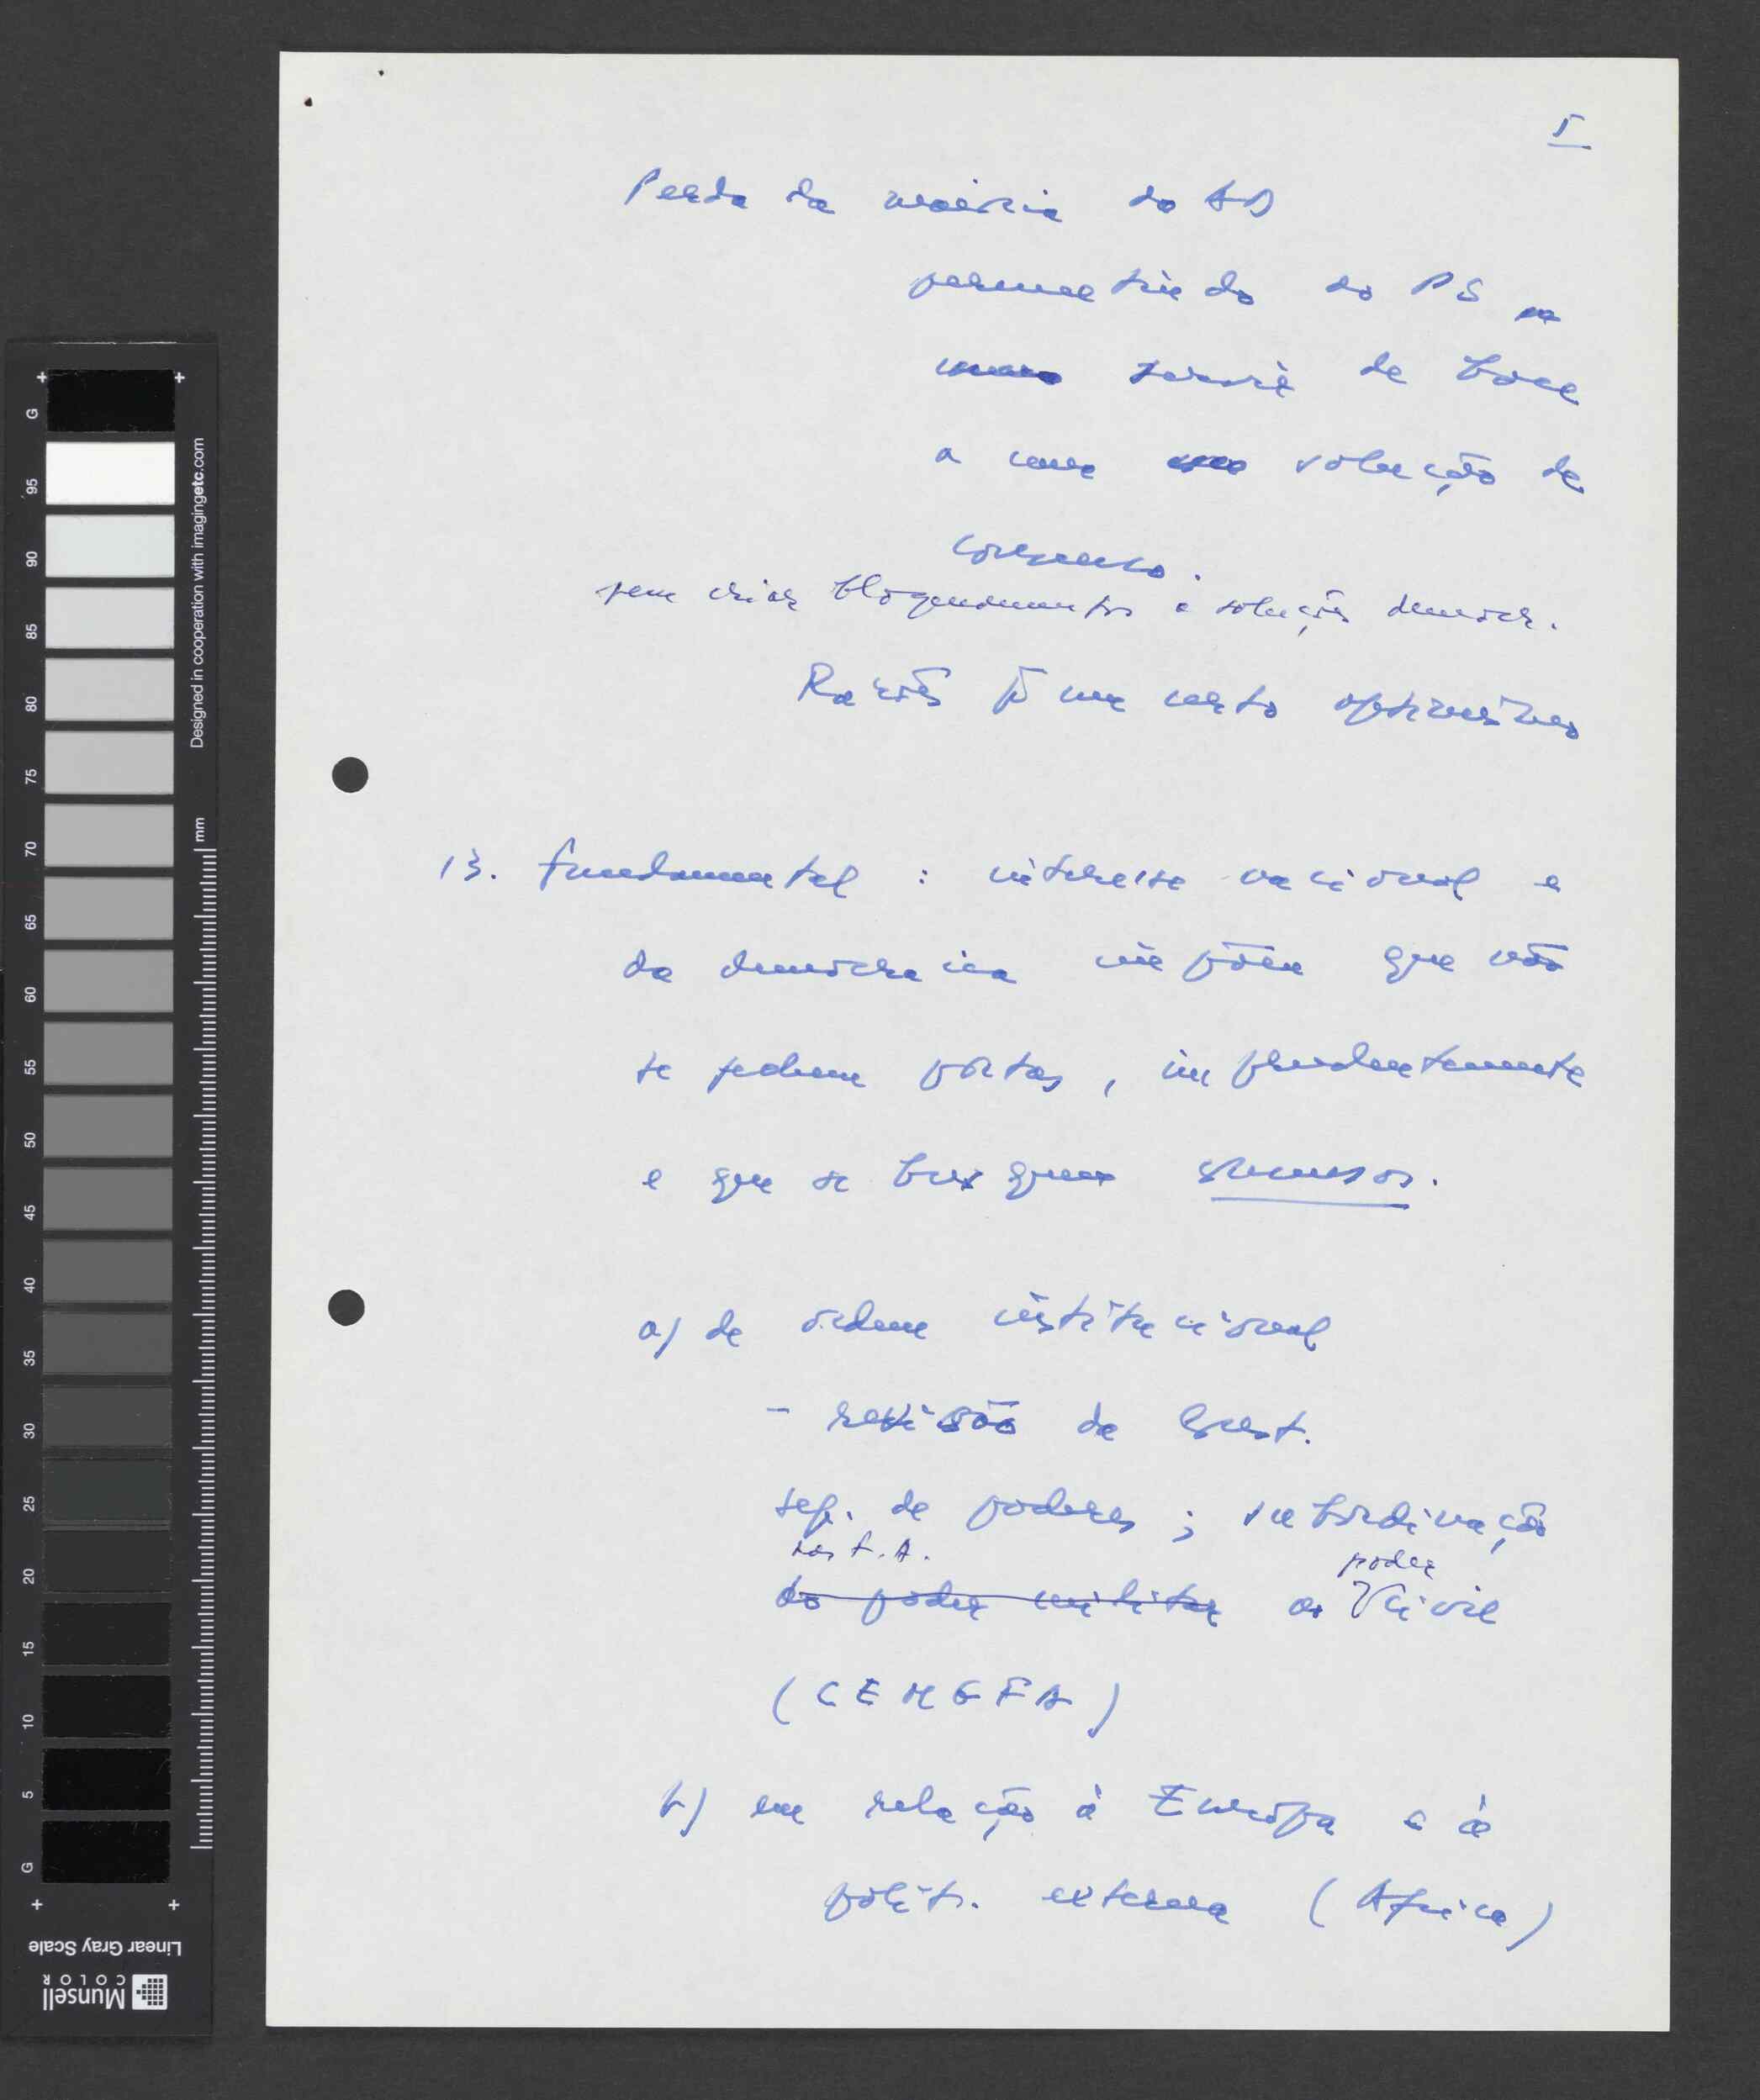 5
Perda da maioria da AD
permitindo ao PS
servir de base
a uma solução de
consenso.
sem criar bloqueamentos e soluções democr.
Razões p. um certo optimismo
13. Fundamental: interesse nacional e
da democracia impõem que não
se fechem portas, imprudentemente
e que se busquem consensos.
a) de ordem institucional
- revisão da Const.
sep. de poderes; subordinação
das F.A. poder
do poder militar ao civil
(CEMGFA)
b) em relação à Europa e à
polít. externa (Africa)
G 95 90 85 80 75 70 65 60 55 50 45 40 35 30 25 20 15 10 5 G
Designed in cooperation with imagingetc.com
mm
Linear Gray Scale
Munsell
COLOR